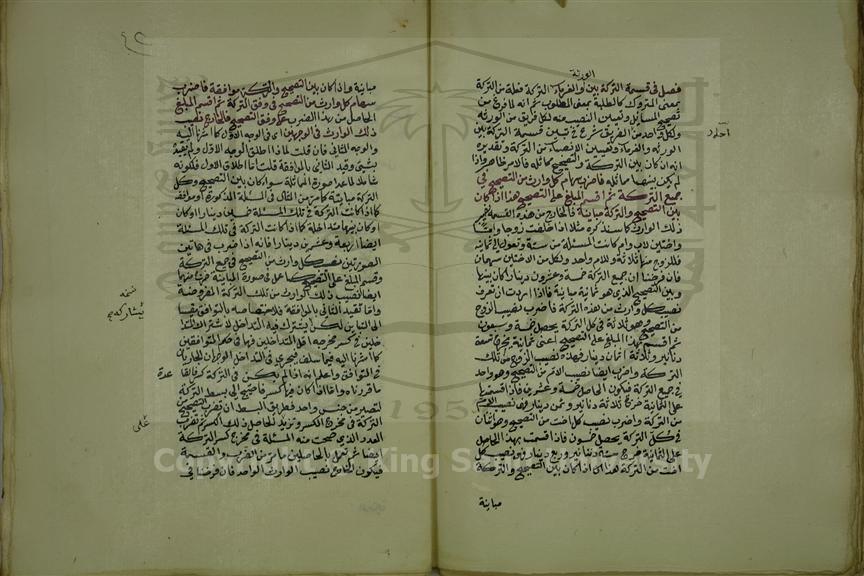 الورثة
فصل في قسمة التركة بين والغرماء التركة فعلة من التركة
بمعنى المتروك كالطلبة بمعنى المطلوب ثم انه لما فرغ من
تصحيح المسائل وتعيين النصيب منه لكل فريق من الورثة
ولكل واحد من الفريق شرع في تبيين قسمة التركة بين
الورثة والغرماء وتعيين الانصباء من التركة وتقديره
انه ان كان بين التركة والتصحيح مماثلة فالامر ظاهر واذا
لم يكن بينهما مماثلة فاضرب سهام كل وارث من التصحيح في
جميع التركة ثم اقسم المبلغ على التصحيح هذا اذا كان
بين التصحيح والتركة مباينة فالخارج من هذه القسمة
ذلك الوارث كما سنذكره مثلا اذا خلفت زوجا واما
واختين لاب وام كانت المسئلة من ستة وتعول الى ثمانية
فللزوج منها ثلاثة وللام واحد ولكل من الاختين سهمان
فان فرضنا ان جميع التركة خمسة وعشرون دينارا كان بينها
وبين التصحيح الذي هو ثمانية مباينة فاذا اردت ان تعرف
نصيب كل وارث من هذه التركة فاضرب نصيب الزوج
من التصحيح وهو ثلاثة في كل التركة يحصل خمسة وسبعون
ثم اقسم هذا المبلغ على التصحيح اعني ثمانية يخرج تسعة
دنانير وثلاثة اثمان دينار فهذه نصيب الزوج من تلك
التركة واضرب ايضا نصيب الام من التصحيح وهو واحد
في جميع التركة فيكون الحاصل خمسة وعشرين فاذا قسمتها
على الثمانية خرج ثلاثة دنانير وثمن دينار فهذا نصيب الام
من التركة واضرب نصيب كل اخت من التصحيح وهو اثنان
في كل التركة يحصل خمسون فاذا قسمت بهذا الحاصل
على الثمانية خرج ستة دنانير وربع دينار ونصيب كل
اخت من التركة هذا اذا كان بين التصحيح والتركة
مباينة
مباينة واذا كان بين التصحيح والتركة موافقة فاضرب
سهام كل وارث من التصحيح في وفق التركة ثم اقسم المبلغ
الحاصل من هذا الضرب على وفق التصحيح فالخارج نصيب
ذلك الوارث في الوجهين اي في الوجه الاول كما اشرنا اليه
والوجه الثاني فان قلت لماذا اطلق الوجه الاول ولم يقيد
بشيئ وقيد الثاني بالموافقة قلت اما اطلاق الاول فلكونه
شاملا لما عدا صورة المماثلة سواء كان بين التصحيح وكل
التركة مباينة كما مر من المثال في المسئلة المذكورة او موافقة
كما اذا كانت التركة في تلك المسئلة خمسين دينارا او كان
او يكون بينهما متداخلة كما اذا كانت التركة في تلك المسئلة
ايضا اربعة وعشرين دينارا فانه اذا ضرب في هاتين
الصورتين نصيب كل وارث من التصحيح في جميع التركة
وقسم المبلغ على التصحيح كما عمل في صورة المباينة خرج منها
ايضا نصيب ذلك الوارث من تلك التركة المفروضة
واما تقييد الثاني بالموافقة فلاختصاصه بالتوافق بقيا
الى التباين لكن يشترك فيه التداخل لاشتراك المتدا
خلين في كسر مخرجه اقل المتداخلين فهما في حكم المتوافقين
كما اشرنا اليه فيما سلف فيجري في التداخل الوجهان الجاريان
في التوافق واعلم انه اذا لم يكن في التركة كسر فالقا
ما قررناه واما اذا كان فيها كسر فاحتيج الى بسط التركة
لتصير من جنس واحد فطريق البسط ان تضرب الصحيح من
التركة في مخرج الكسر وتزيد على حاصل ذلك الكسر ثم تضرب
العدد الذي صحت منه المسئلة في مخرج كسر التركة
ايضا ثم تعمل بالحاصلين ما مر من الضرب والقسمة
فيكون الخارج نصيب الوارث الواحد فان فرضنا في
نسخة
يشاركه
عدة
على
1957
Copyright © King Saud University